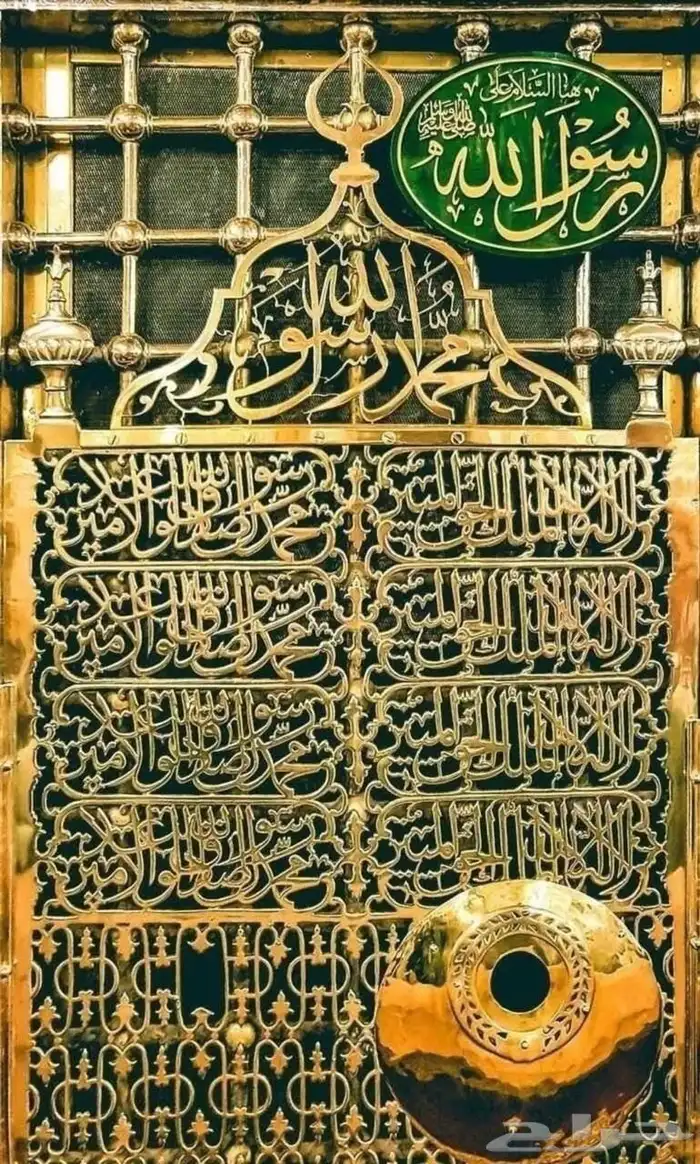 هنا السلام على
رسول الله
صلى الله عليه وسلم
محمد رسول الله
لا إله إلا الله الملك الحق المبين
محمد رسول الله الصادق الوعد الأمين
لا إله إلا الله الملك الحق المبين
محمد رسول الله الصادق الوعد الأمين
لا إله إلا الله الملك الحق المبين
محمد رسول الله الصادق الوعد الأمين
لا إله إلا الله الملك الحق المبين
محمد رسول الله الصادق الوعد الأمين
حراج